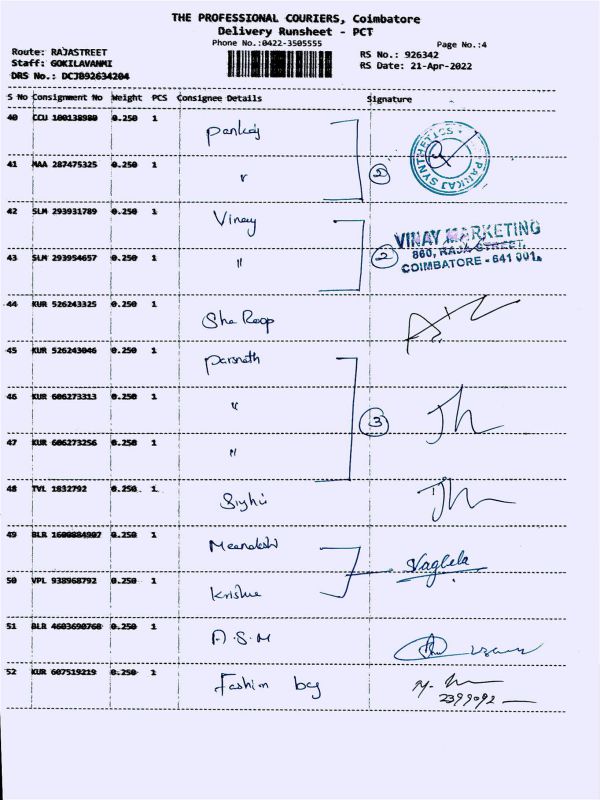 THE PROFESSIONAL COURIERS, Coimbatore
Delivery Runsheet - PCT
Phone No.:0422-3505555
Page No.:4
Route: RAJASTREET
Staff: GOKILAVANMI
DRS No.: DCJB92634204
RS No.: 926342
RS Date: 21-Apr-2022
S No Consignment No Weight PCS Consignee Details Signature
40 CCU 100138980 0.250 1 Pankaj
PANKAJ SYNTHETICS
41 MAA 287475325 0.250 1 " 2
42 SLM 293931789 0.250 1 Vinay
VINAY MARKETING
860, RAJA STREET,
COIMBATORE - 641 001.
43 SLM 293954657 0.250 1 " 2
44 KUR 526243325 0.250 1 Sha Roop
45 KUR 526243046 0.250 1 Parsnath
46 KUR 606273313 0.250 1 " 3
47 KUR 606273256 0.250 1 "
48 TVL 1832792 0.250 1
49 BLR 1600884907 0.250 1 Meenakshi
Vaghela
50 VPL 938968792 0.250 1 Krishna
51 BLR 4603690768 0.250 1 A.S.M
52 KUR 607519219 0.250 1 Fashion bag
2399092